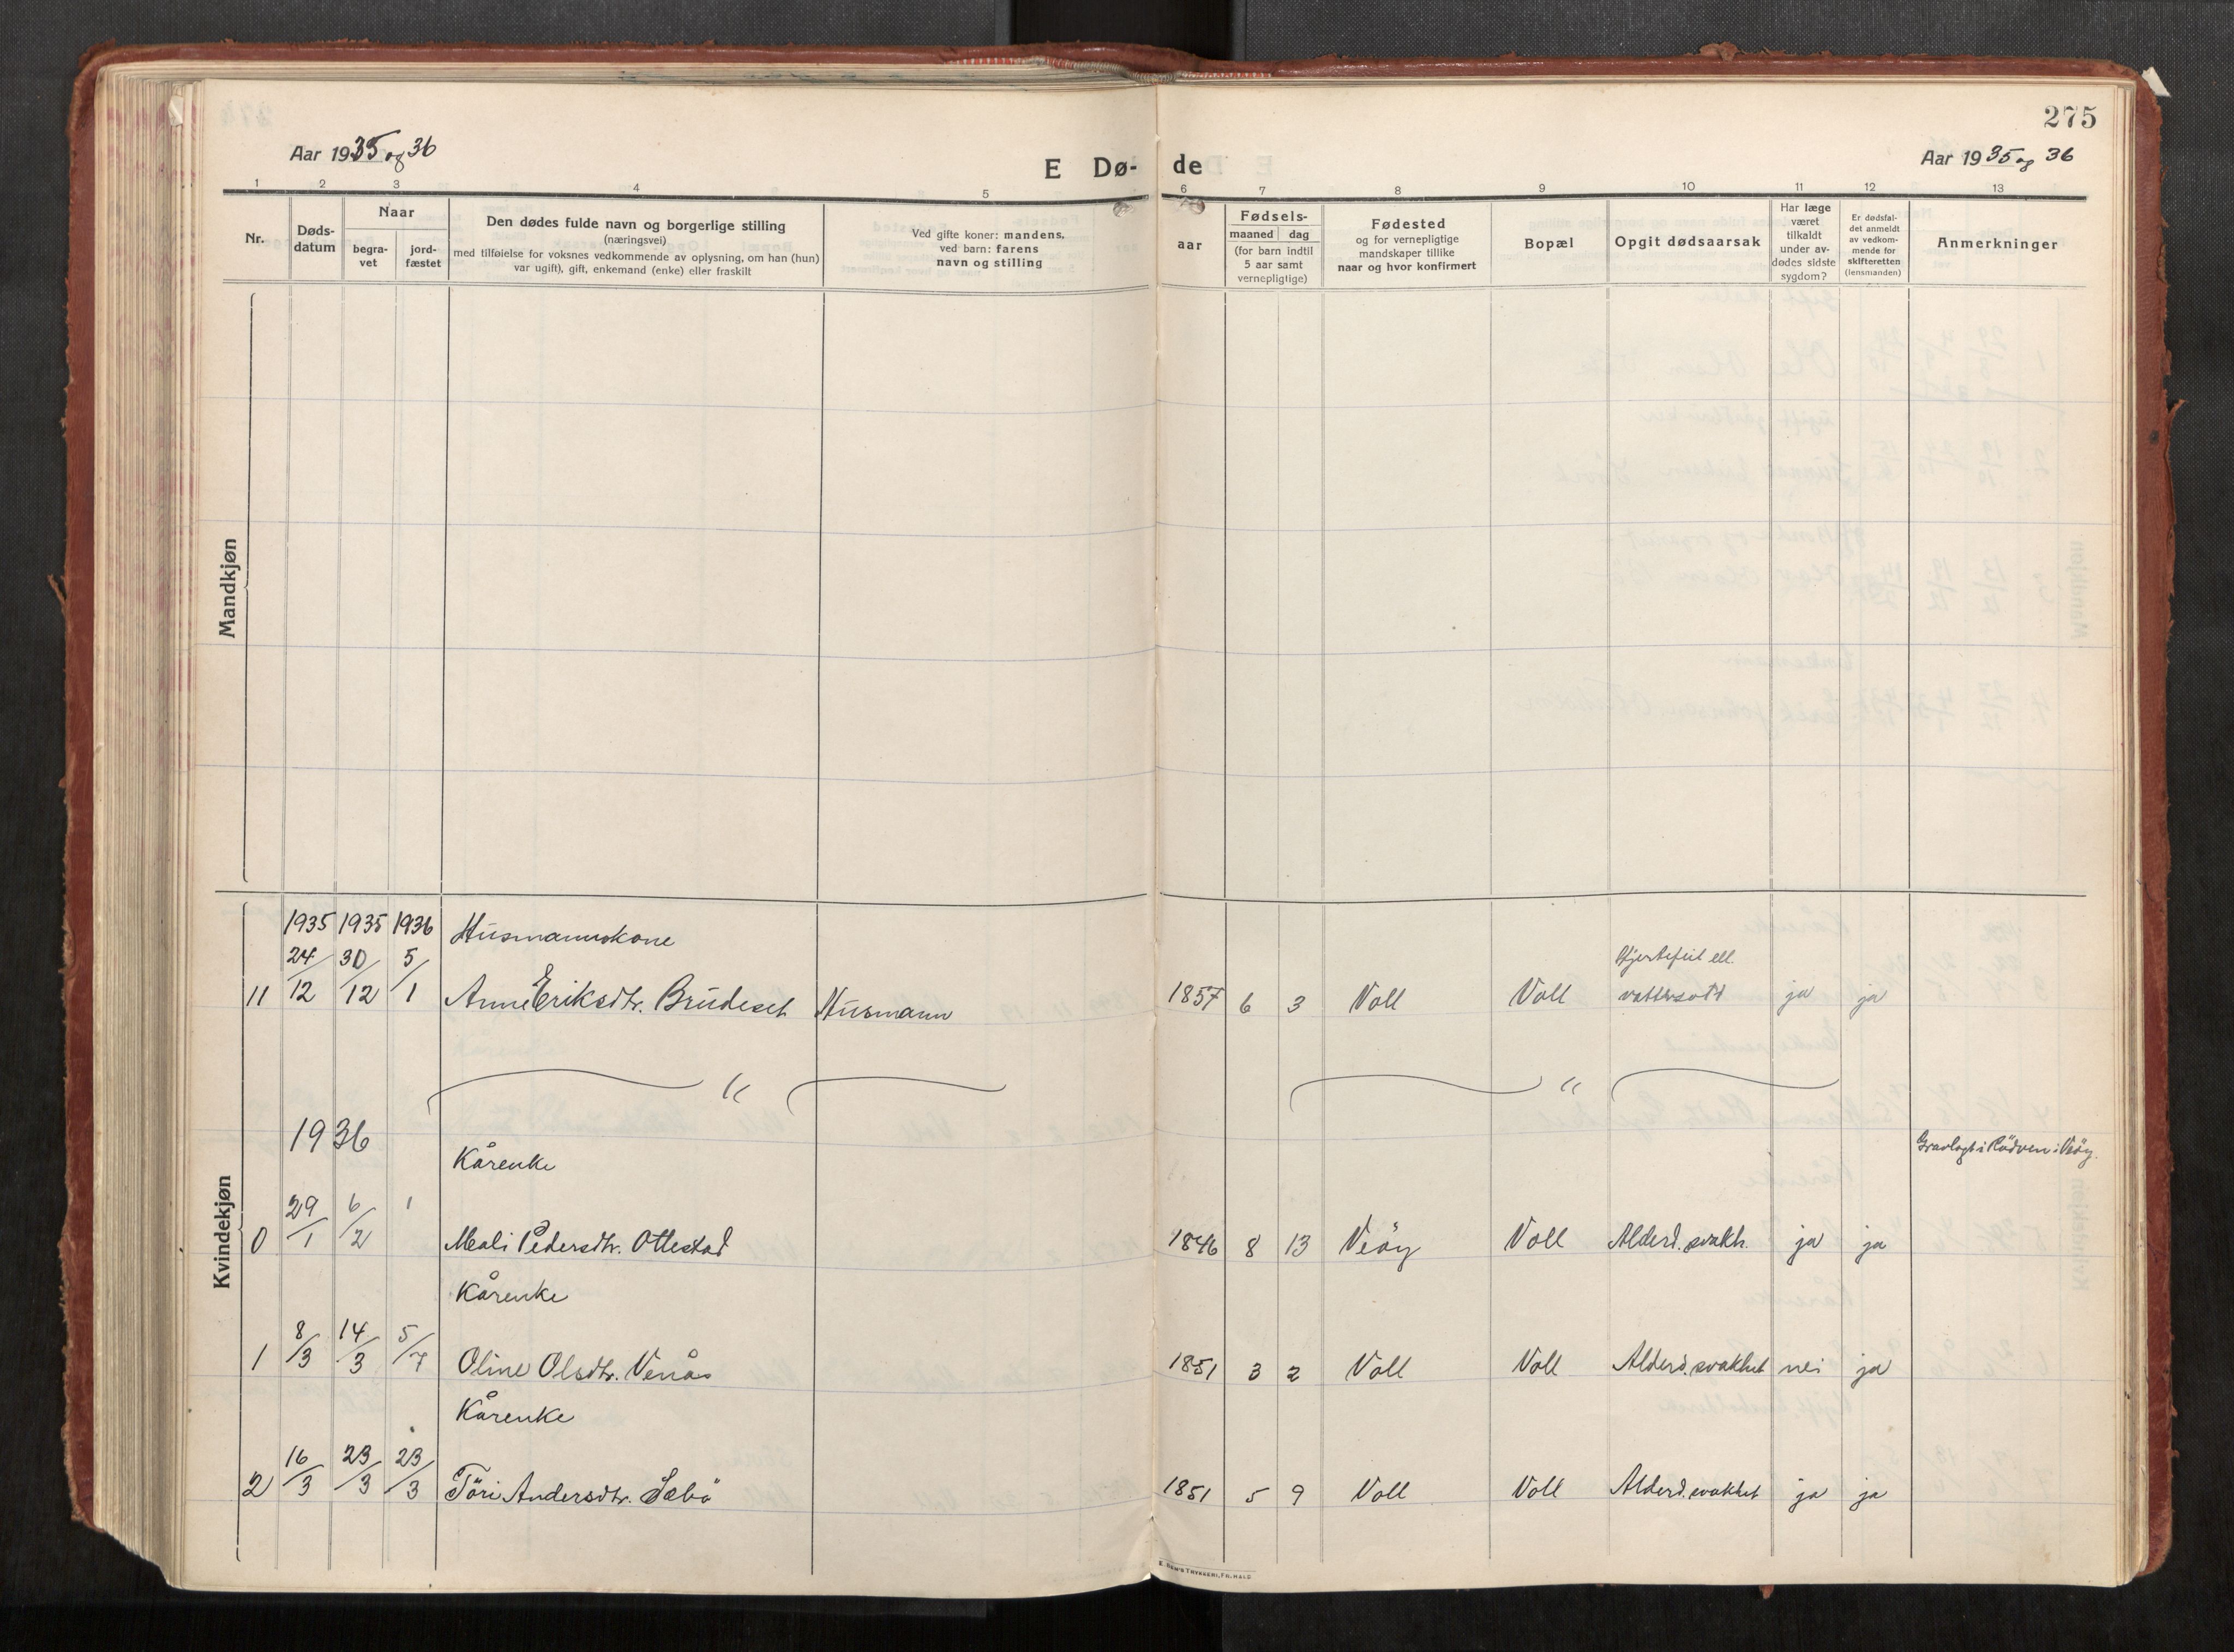 275
Aar 1935 og 36
E Dø-
de
Aar 1935 og 36
1 2 3 4 5 6 7 8 9 10 11 12 13
Nr.
Døds-
datum
Naar
begra-
vet
jord-
fæstet
Den dødes fulde navn og borgerlige stilling
(næringsvei)
med tilføielse for voksnes vedkommende av oplysning, om han (hun)
var ugift), gift, enkemand (enke) eller fraskilt
Ved gifte koner: mandens,
ved barn: farens
navn og stilling
aar
Fødsels-
maaned dag
(for barn indtil
5 aar samt
vernepligtige)
Fødested
og for vernepligtige
mandskaper tillike
naar og hvor konfirmert
Bopæl
Opgit dødsaarsak
Har læge
været
tilkaldt
under av-
dødes sidste
sygdom?
Er dødsfal-
det anmeldt
av vedkom-
mende for
skifteretten
(lensmanden)
Anmerkninger
Mandkjøn
Kvindekjøn
1935 1935 1936 Husmannskone
24/12 30/12 5/1
Hjertefeil ell.
11 Anne Eriksdtr. Brudeset Husmann 1857 6 3 Voll Voll vattersott ja ja
" "
1936
Kårenke Gravlagt i Rödven i Veöy.
0 29/1 6/2 1 Mali Pedersdtr. Ottestad 1846 8 13 Veöy Voll Alderd. svakh. ja ja
Kårenke
1 8/3 14/3 5/7 Oline Olsdtr. Venås 1851 3 2 Voll Voll Alderd. svakhet nei ja
Kårenke
2 16/3 23/3 23/3 Töri Andersdtr. Sæbö 1851 5 9 Voll Voll Alderd. svakhet ja ja